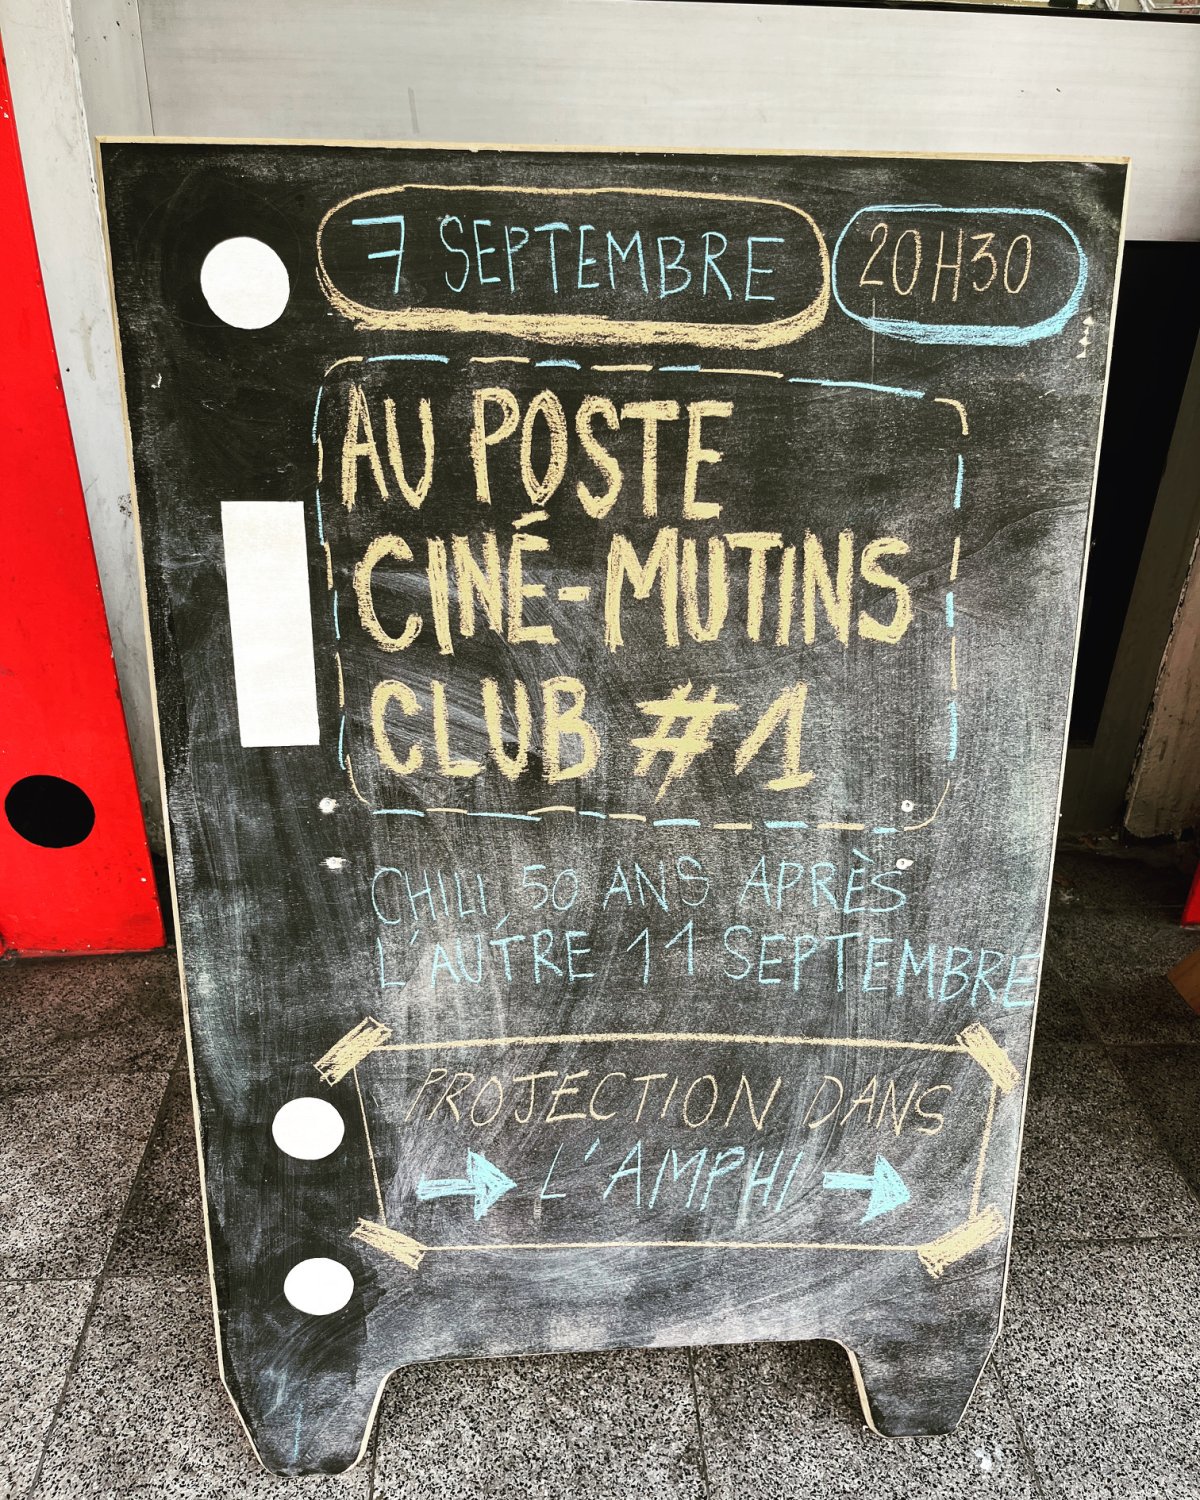 7 SEPTEMBRE 20H30
AU POSTE
CINÉ-MUTINS
CLUB #1
CHILI, 50 ANS APRÈS
L'AUTRE 11 SEPTEMBRE
PROJECTION DANS
→ L'AMPHI →